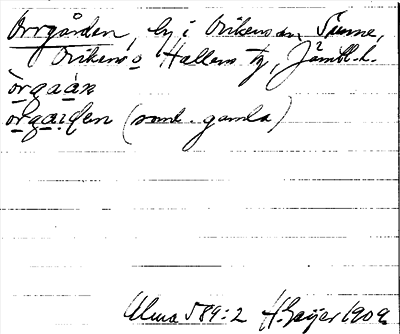 Orrgården, by i Ovikens sn, Sunne,
Ovikens o Hallens tg, Jämtl. l.
òrgaán
òrgaɪden (saml. gamla)
Ulma 589:2 H. Geijer 1909